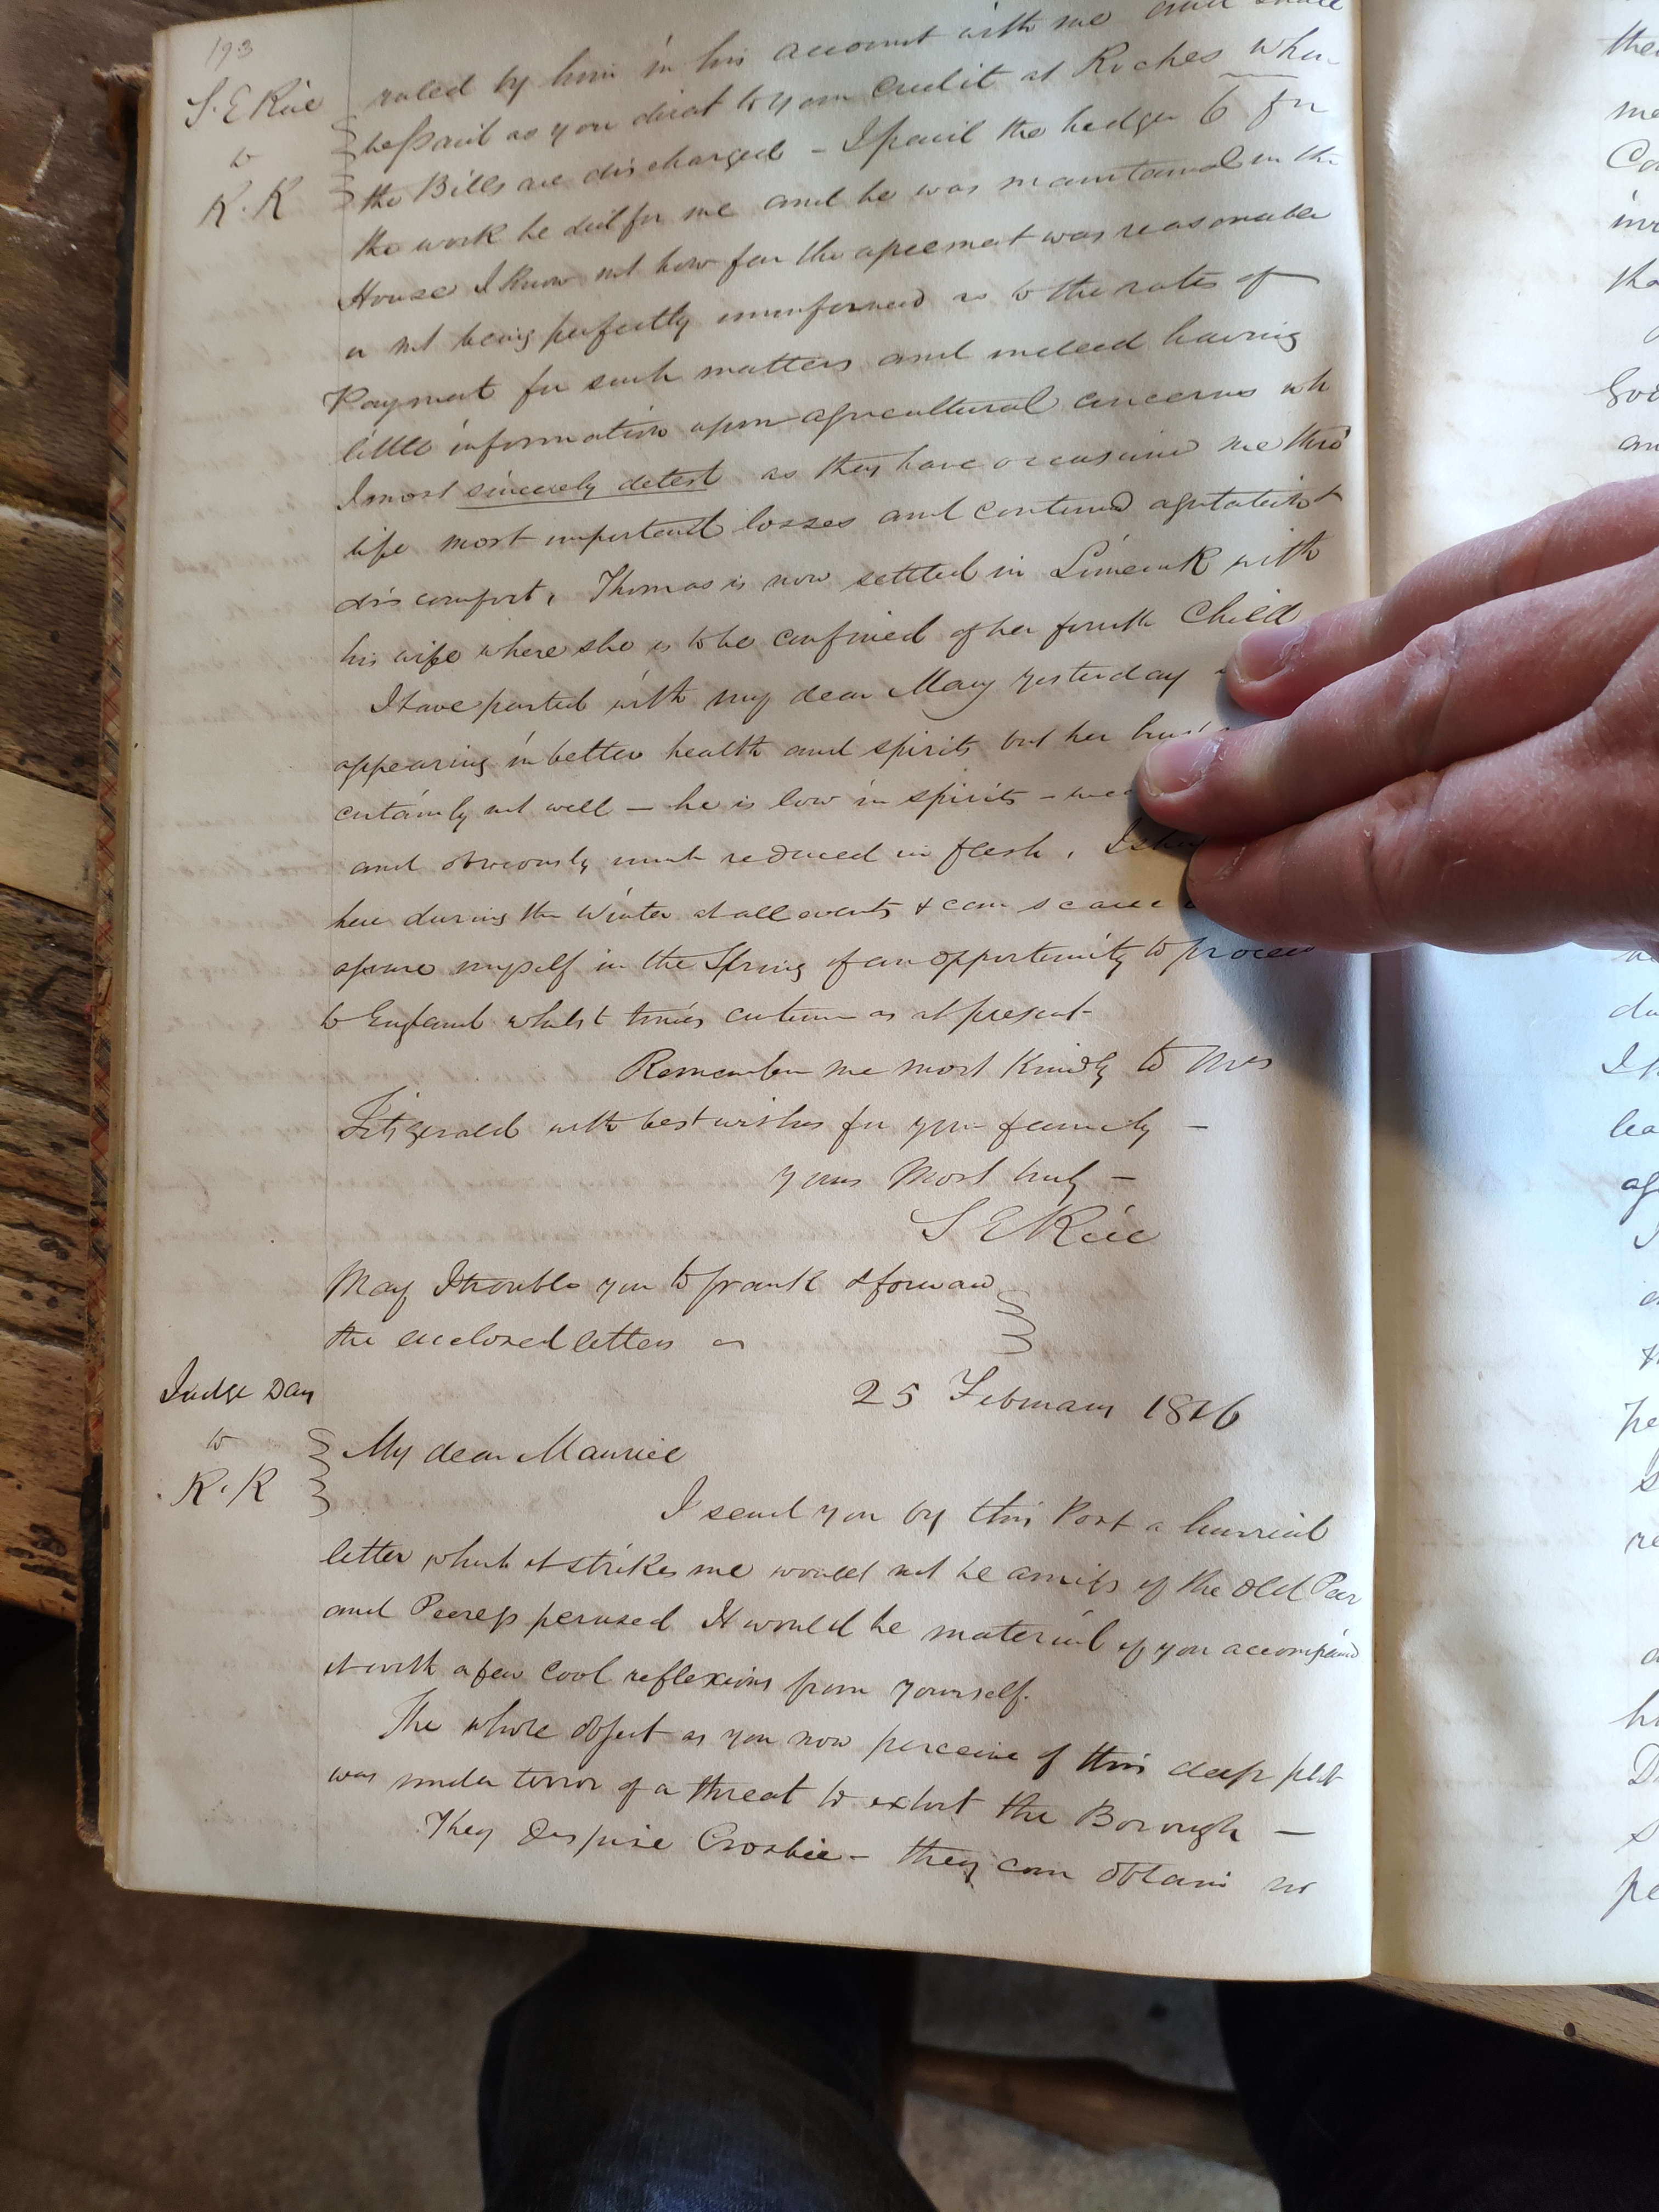 193
S. E Rice
to
R. R
ruled by him in his account with me and shall
be paid as you direct to your credit at Roches when
the Bills are discharged – I paid the hedger 6 for
the work he did for me and he was maintained in the
House I know not how far the agreement was reasonable
or not being perfectly uninformed as to the rates of
Payment for such matters and indeed having
little information upon agricultural concerns wh
I most sincerely detest as they have occasioned me thro'
life most important losses and continued agitation &
discomfort, Thomas is now settled in Limerick with
his wife where she is to be confined of her fourth Child
I have parted with my dear Mary yesterday
appearing in better health and spirits but her
certainly not well – he is low in spirits –
and obviously much reduced in flesh, I
here during the Winter at all events & can scarce
assure myself in the Spring of an opportunity to proceed
to England whilst times continue as at present
Remember me most Kindly to Mrs
Fitzgerald with best wishes for your family –
yours Most truly –
S E Rice
May I trouble you to frank & forward
the enclosed letters
25 February 1816
Judge Day
to
R. R
My dear Maurice
I send you by this Post a hurried
letter which it strikes me would not be amiss if the Old Peer
and Peeress perused It would be material if you accompanied
it with a few cool reflexions from yourself.
The whole object as you now perceive of this deep plot
was under terror of a threat to extort the Borough –
They despise Crosbie – they can obtain no